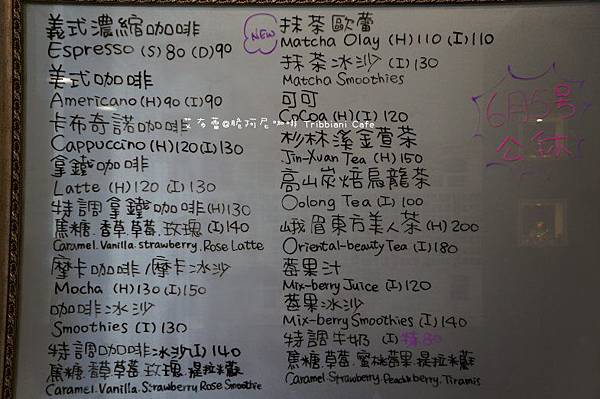 義式濃縮咖啡
Espresso (S) 80 (D) 90
美式咖啡
Americano (H) 90 (I) 90
卡布奇諾咖啡
Cappuccino (H) 120 (I) 130
拿鐵咖啡
Latte (H) 120 (I) 130
特調拿鐵咖啡 (H) 130
焦糖.香草.草莓.玫瑰 (I) 140
Caramel.Vanilla.strawberry.Rose Latte
摩卡咖啡/摩卡冰沙
Mocha (H) 130 (I) 150
咖啡冰沙
Smoothies (I) 130
特調咖啡冰沙(I) 140
焦糖.香草.草莓.玫瑰.提拉米蘇
Caramel.Vanilla.Strawberry.Rose Smoothie
NEW
抹茶歐蕾
Matcha Olay (H) 110 (I) 110
抹茶冰沙 (I) 130
Matcha Smoothies
可可
CoCoa (H) (I) 120
杉林溪金萱茶
Jin-Xuan Tea (H) 150
高山炭焙烏龍茶
Oolong Tea (I) 100
峨眉東方美人茶 (H) 200
Oriental-beauty Tea (I) 180
莓果汁
Mix-berry Juice (I) 120
莓果冰沙
Mix-berry Smoothies (I) 140
特調牛奶 (I) 特.80
焦糖.草莓.蜜桃莓果.提拉米蘇
Caramel.Strawberry.Peachberry.Tiramis
6月5号
公休
Tribbiani Cafe